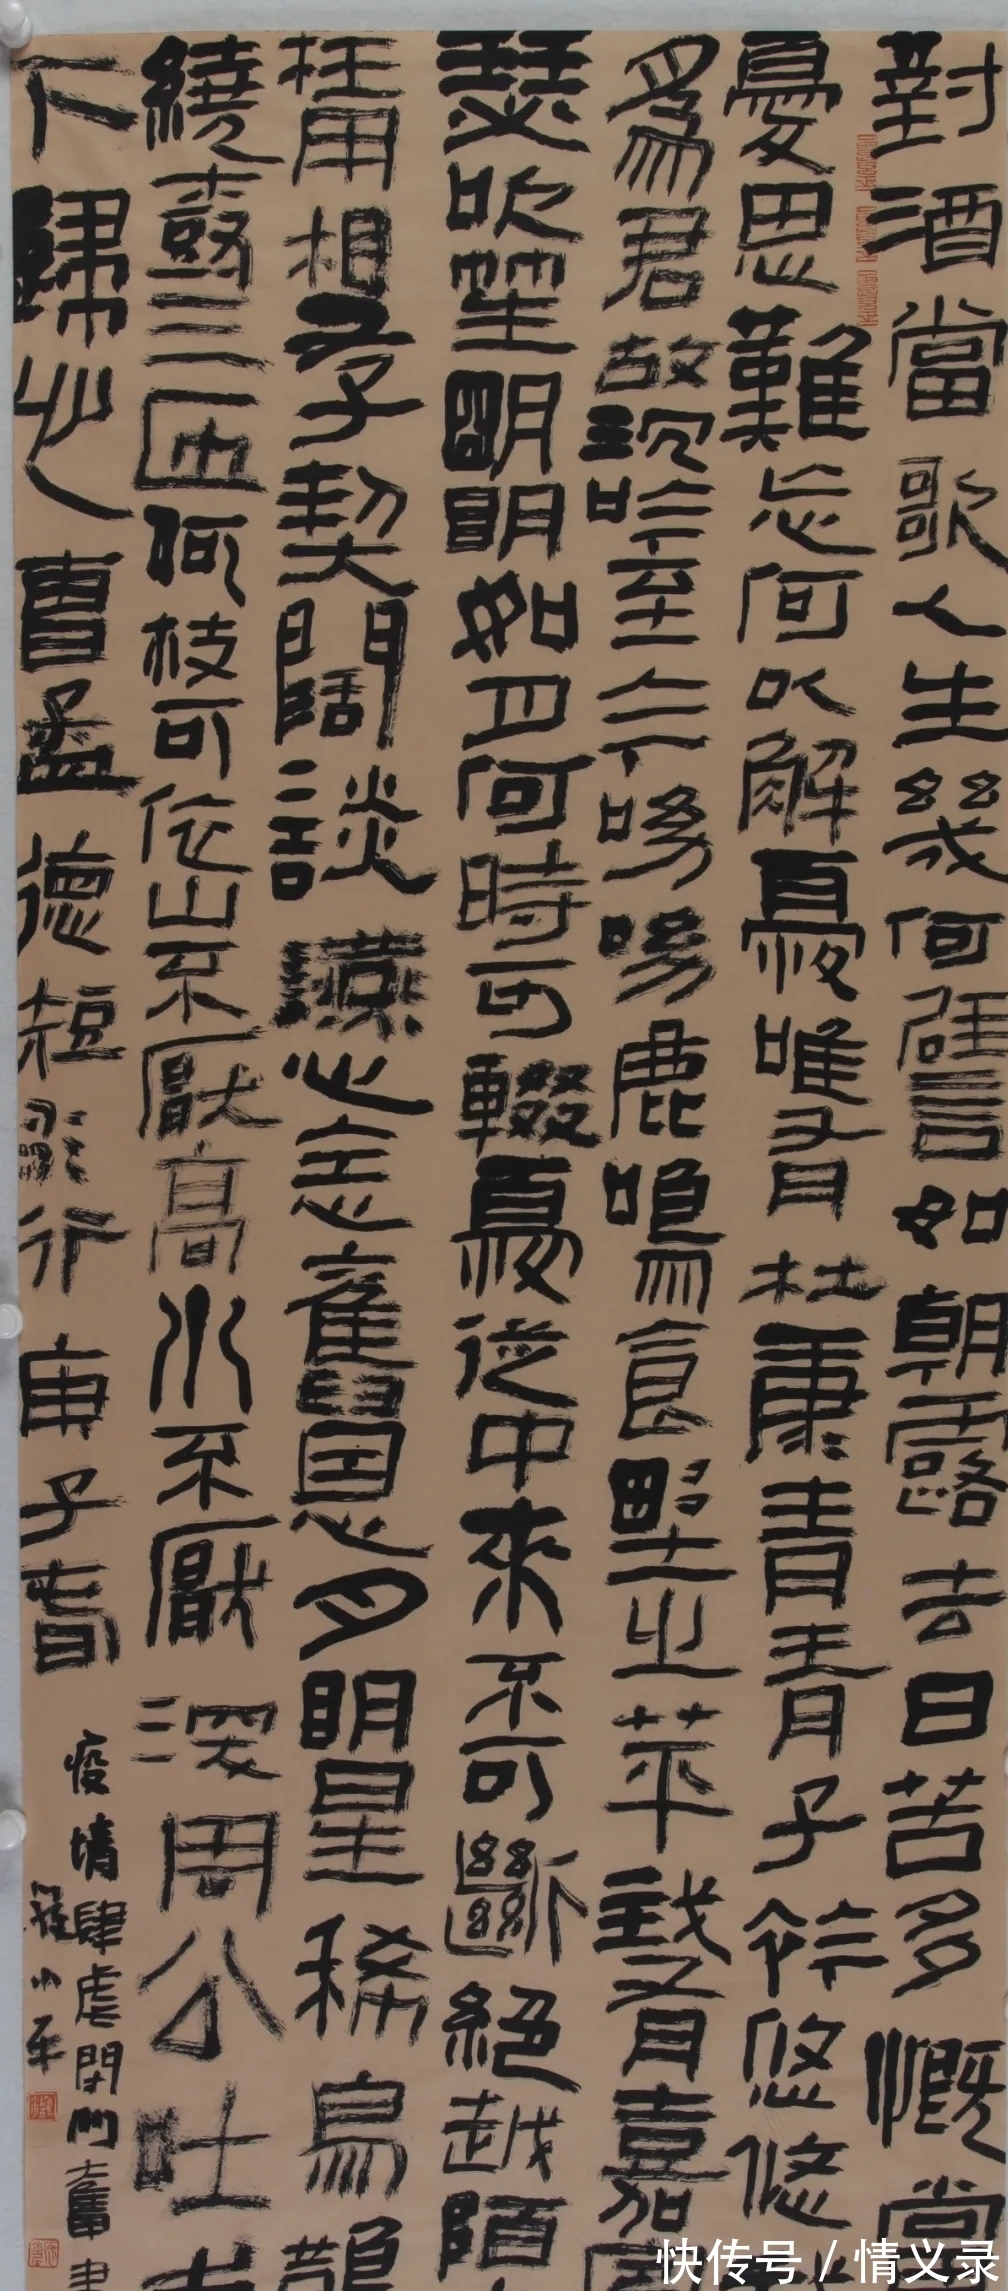 對酒當歌人生幾何譬如朝露去日苦多慨當
憂思難忘何以解憂唯有杜康青青子衿悠悠
為君故沉吟至今呦呦鹿鳴食野之苹我有嘉
瑟吹笙明明如月何時可輟憂從中來不可斷絕越陌
枉用相存契闊談讌心念舊恩月明星稀烏鵲
繞樹三匝何枝可依山不厭高水不厭深周公吐
下歸心 曹孟德短歌行 庚子春
疫情肆虐閉門奮書
小平
快传号 / 情义录